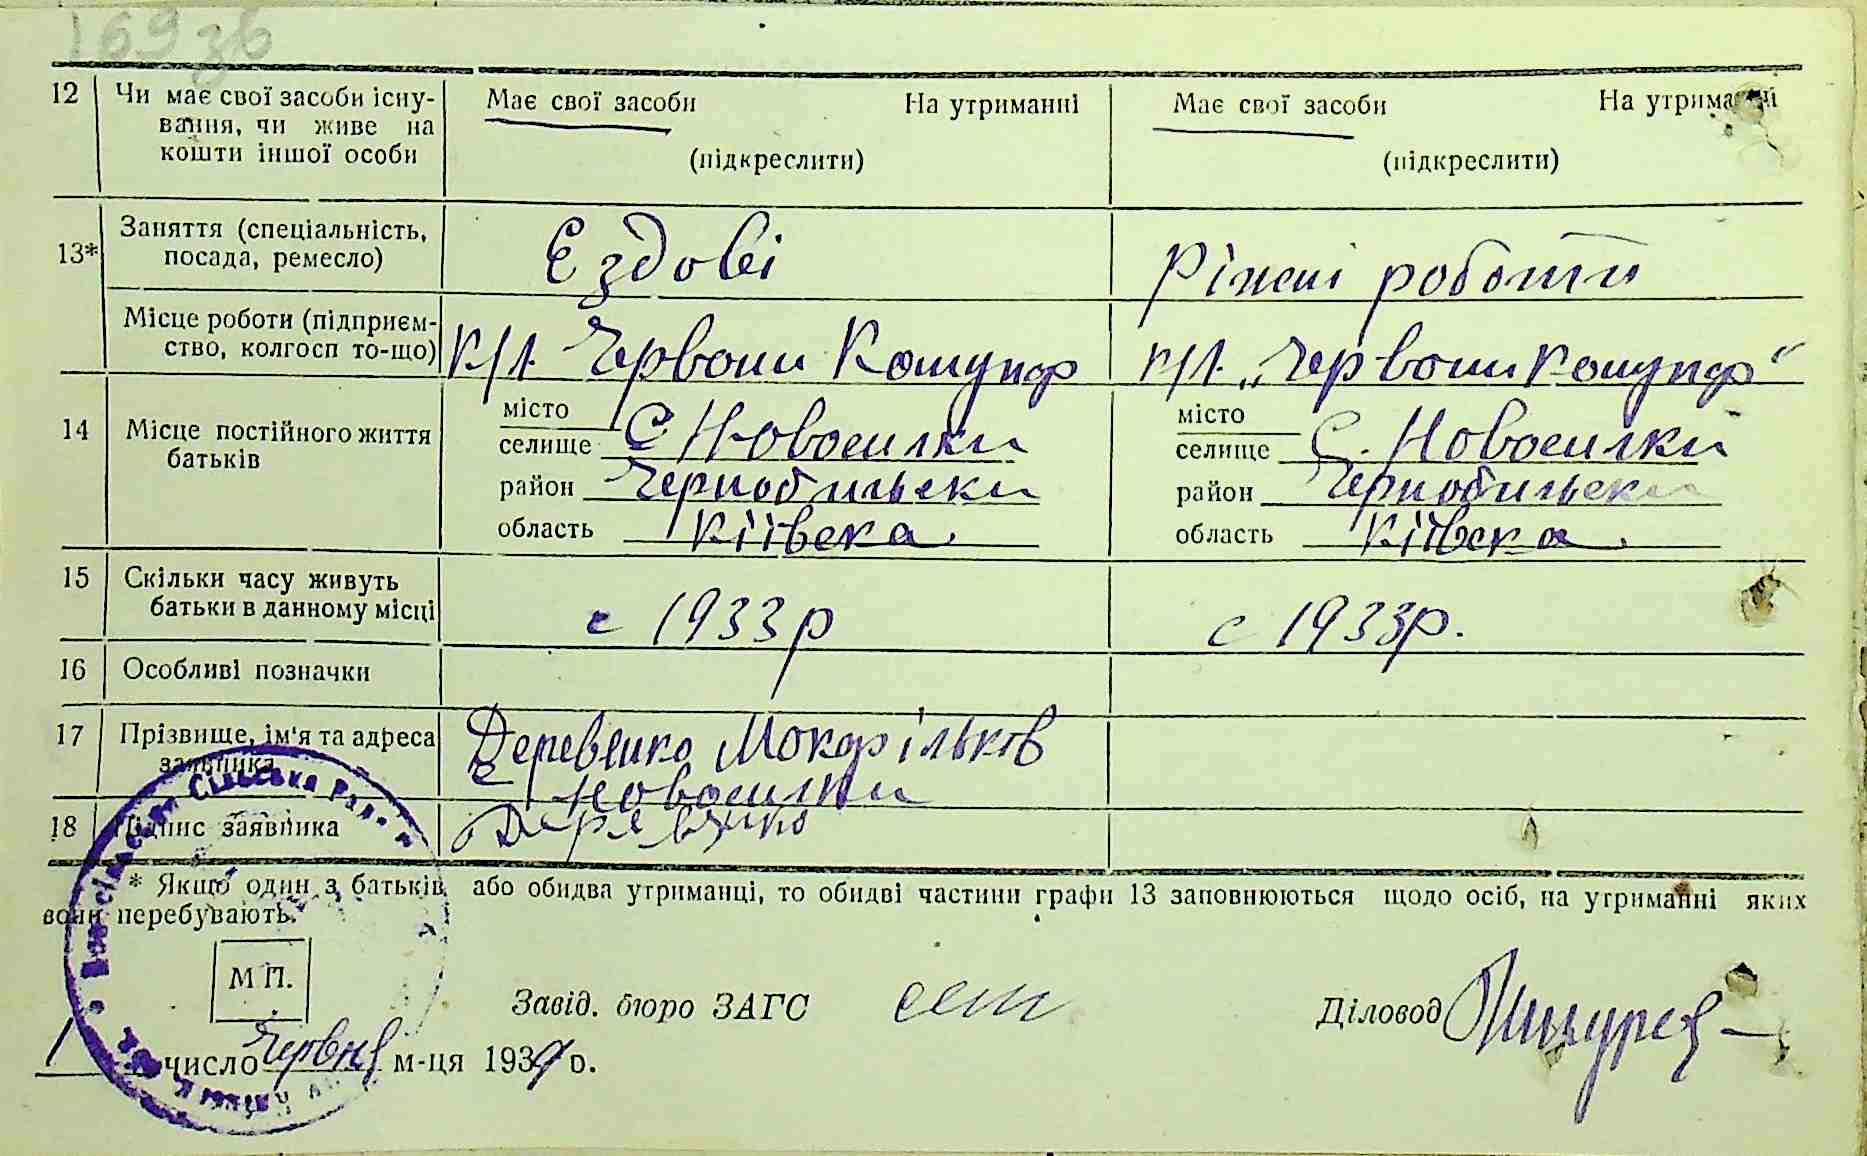 169 зв
12 Чи має свої засоби існу-
вання, чи живе на
кошти іншої особи
Має свої засоби На утриманні
(підкреслити)
Має свої засоби На утриманні
(підкреслити)
13* Заняття (спеціальність,
посада, ремесло)
Єздові
Ріжні роботи
Місце роботи (підприєм-
ство, колгосп то-що)
к/г. Червони
к/г. „Червони
14 Місце постійного життя
батьків
місто
селище С. Новосилки
район Чернобильски
область Київска
місто
селище С. Новосилки
район Чернобильски
область Київска
15 Скільки часу живуть
батьки в данному місці
с 1933 р
с 1933 р.
16 Особливі позначки
17 Прізвище, ім'я та адреса
заявника
Деревенко
с Новосилки
18 Підпис заявника
* Якщо один з батьків або обидва утриманці, то обидві частини графи 13 заповнюються щодо осіб, на утриманні яких
вони перебувають.
М П.
Завід. бюро ЗАГС
Діловод
1 число Червня м-ця 1939 р.
Сільська Рада